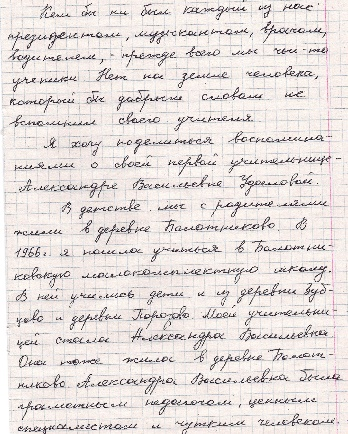 Кем бы ни был каждый из нас:
президентом, музыкантом, врачом,
водителем, - прежде всего мы чьи-то
ученики. Нет на земле человека,
который бы добрым словом не
вспомнил своего учителя.
Я хочу поделиться воспомина-
ниями о своей первой учительнице -
Александре Васильевне
В детстве мы с родителями
жили в деревне Балотниково. В
1966 г. я пошла учиться в Балотни-
ковскую малокомплектную школу.
В ней учились дети и из деревни Зуб-
цово и деревни Порозово. Моей учительни-
цей стала Александра Васильевна
Она тоже жила в деревне Балот-
никово Александра Васильевна была
грамотным педагогом, ценным
специалистом и чутким человеком.